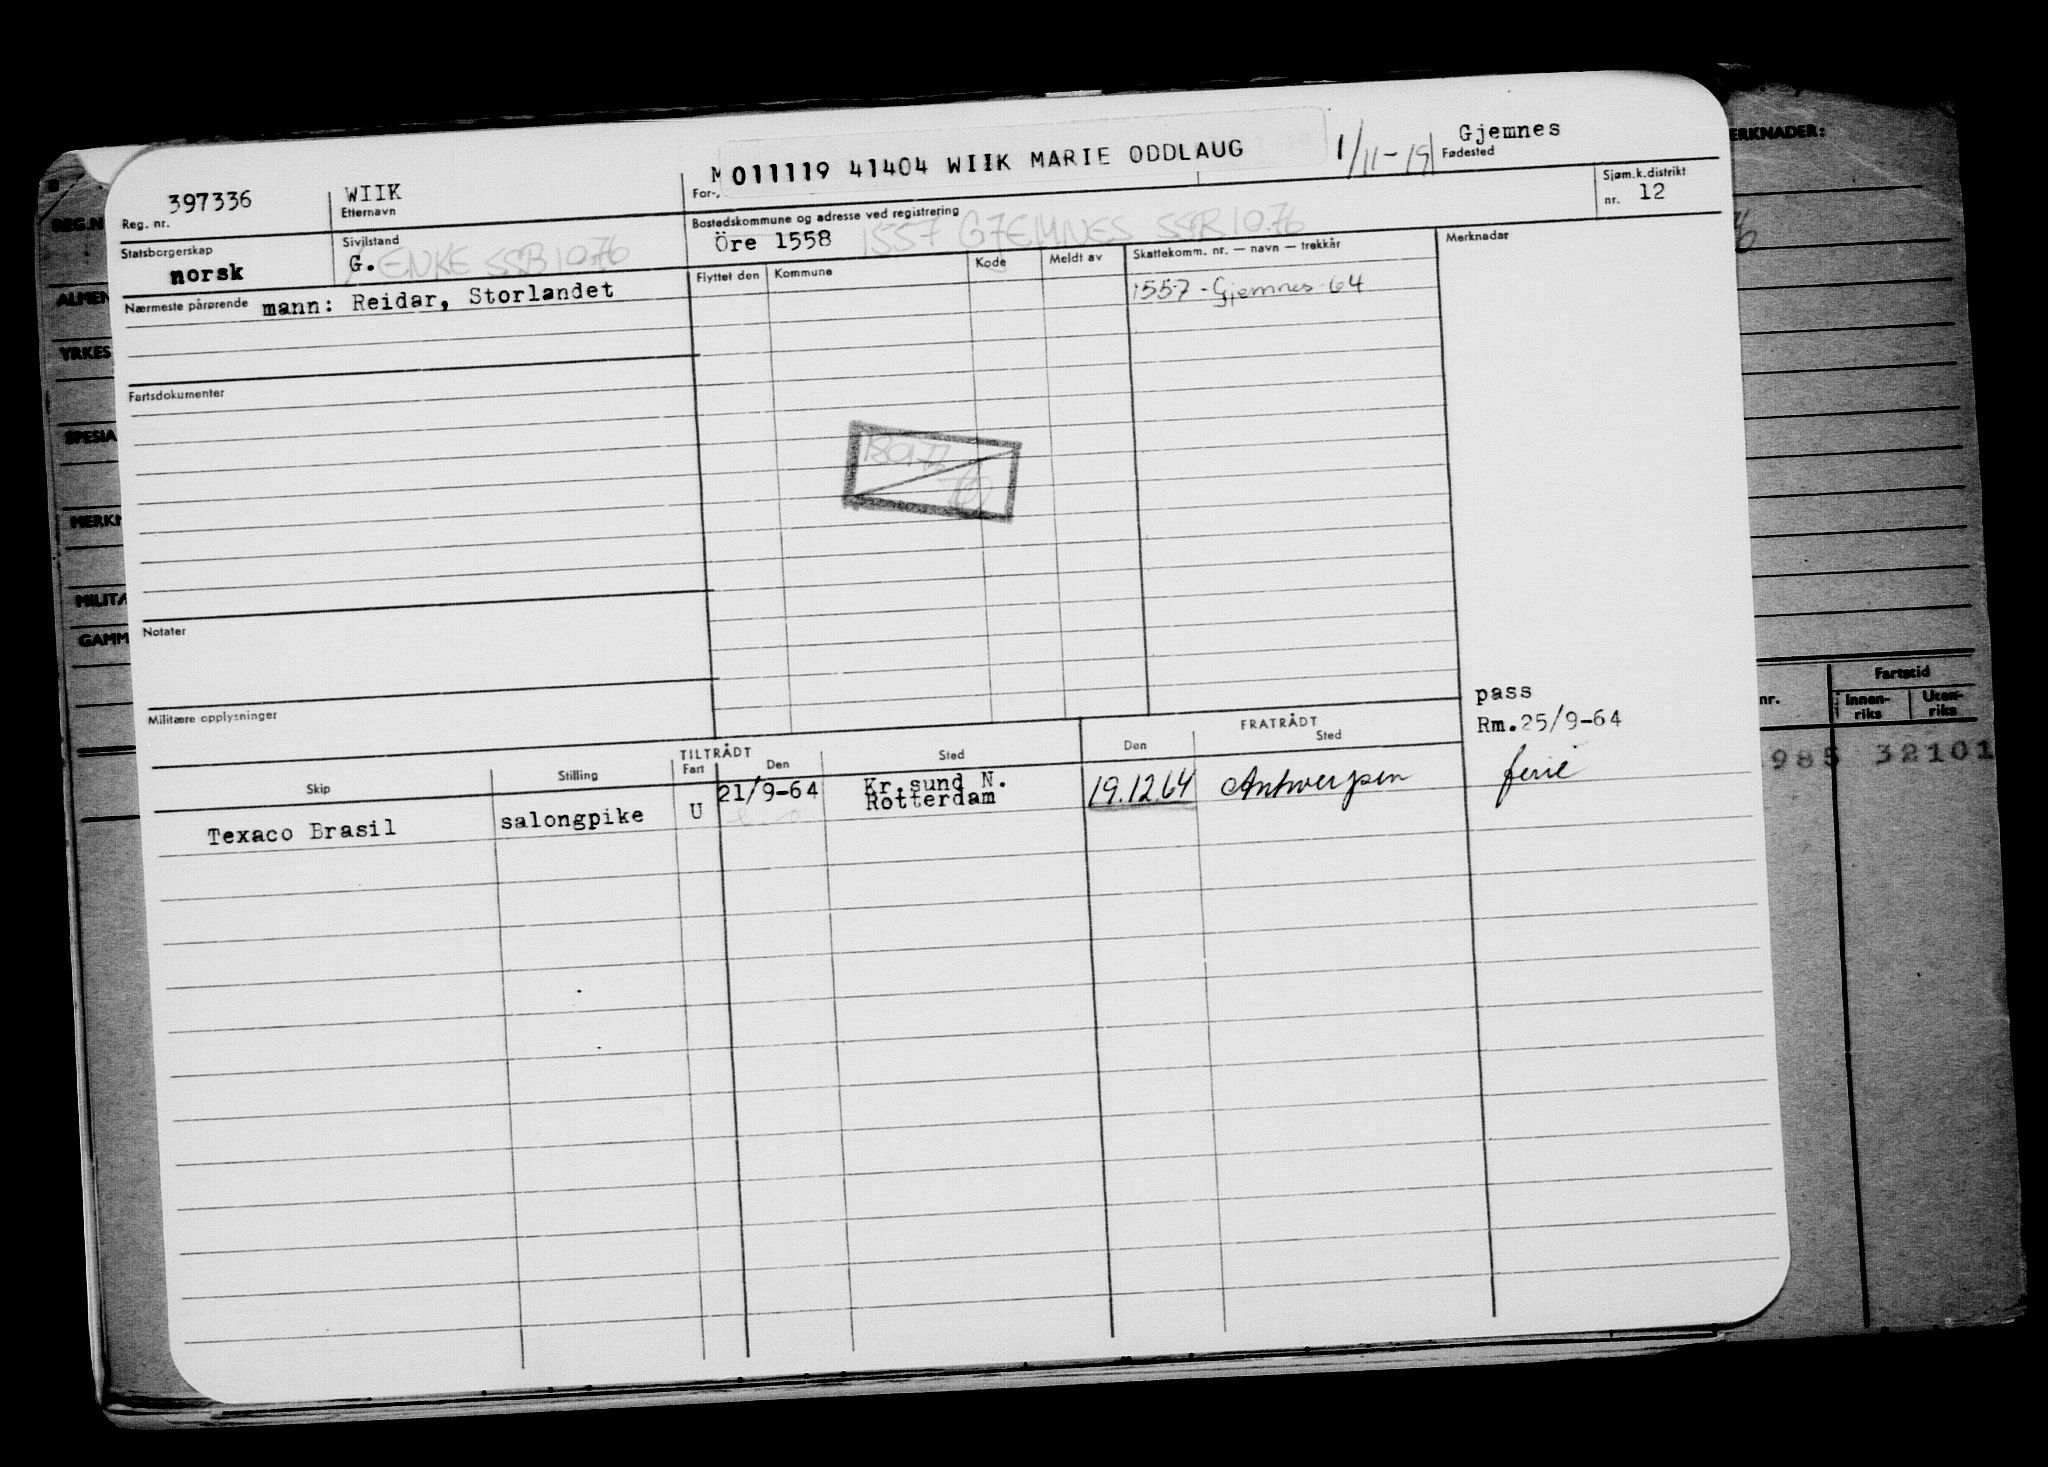 397336
Reg. nr.
WIIK
Etternavn
M
For-,
011119 41404 WIIK MARIE ODDLAUG
1/11-19
Gjemnes
Fødested
Statsborgerskap
norsk
Sivilstand
G. ENKE SSB 10.76
Bostedskommune og adresse ved registrering
Öre 1558 1557 GJEMNES SSB 10.76
Sjøm.k.distrikt
nr. 12
Nærmeste pårørende mann: Reidar, Storlandet
Flyttet den Kommune Kode Meldt av Skattekomm. nr. — navn — trekkår Merknadar
1557 - Gjemnes - 64
Fartsdokumenter
Notater
Militære opplysninger
pass
Rm.25/9-64
TILTRÅDT FRATRÅDT
Skip Stilling Fart Den Sted Den Sted
Texaco Brasil salongpike U 21/9-64 Kr.sund N. 19.12.64 Antwerpen ferie
Rotterdam
REG.N
ALMEN
YRKES
SPESIA
MERKN
MILITÆ
GAMM
ERKNADER:
nr.
Fartstid
Innen-
riks
Uten-
riks
985 32101